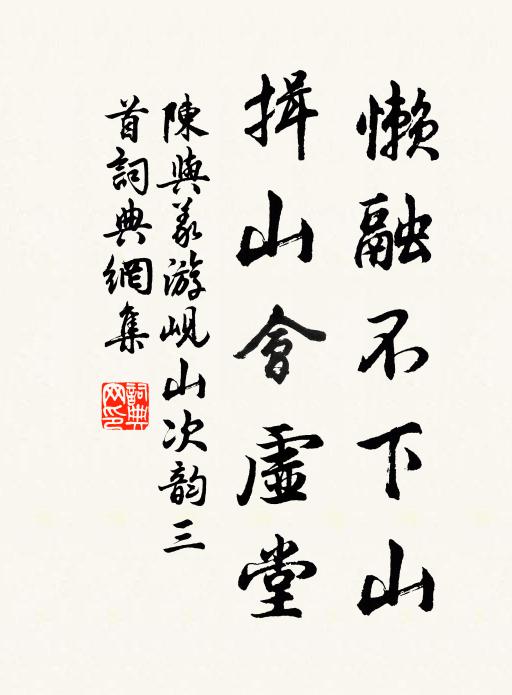 懶融不下山
揖山會虛堂
陳與義游峴山次韵三
首詞典網集
詞典
网印